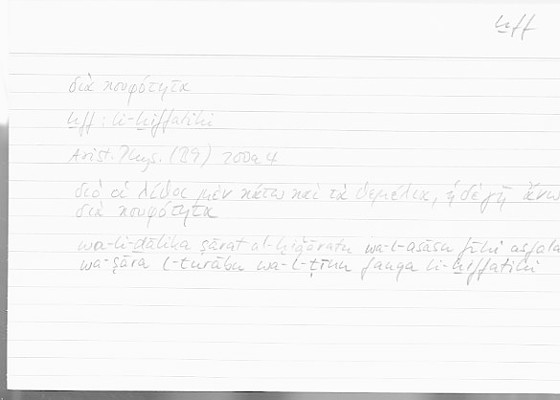 ḫff
διὰ κουφότητα
ḫff : li-ḫiffatihi
Arist. Phys. (B9) 200a4
διὸ οἱ λίθοι μὲν κάτω καὶ τὰ θεμέλια, ἡ δὲ γῆ ἄνω
διὰ κουφότητα
wa-li-ḏālika ṣārat al-ḥiǧāratu wa-l-asāsu fīhi asfala
wa-ṣāra l-turābu wa-l-ṭīnu fauqa li-ḫiffatihi